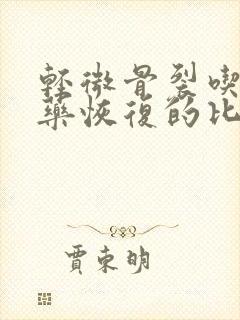 輕微骨裂喫
藥恢復的比
賈東明